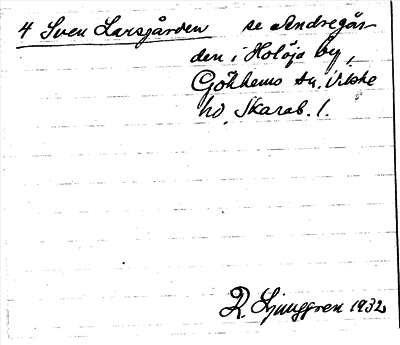 4 Sven Larsgården se Andregår-
den i Holöja by,
Gökhems sn. Vilske
hd, Skarab. l.
R. Ljunggren 1932